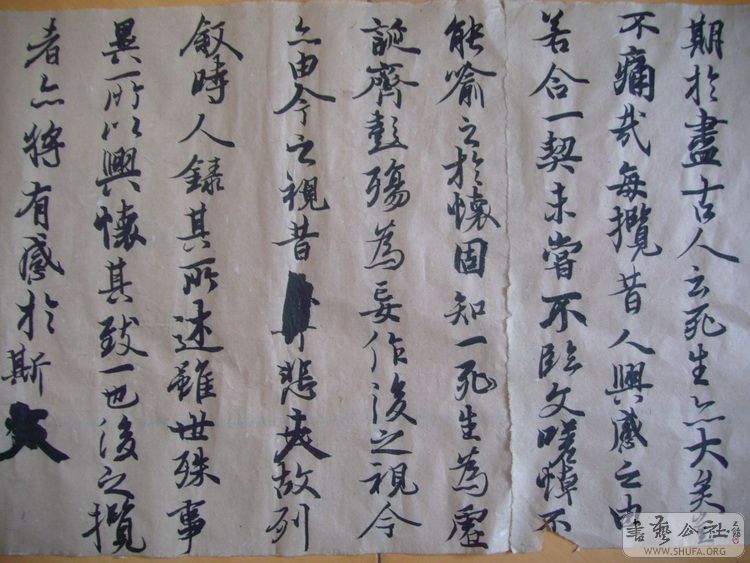 期於盡古人云死生亦大矣豈
不痛哉每攬昔人興感之由
若合一契未嘗不臨文嗟悼不
能喻之於懷固知一死生為虛
誕齊彭殤為妄作後之視今
亦由今之視昔悲夫故列
敘時人錄其所述雖世殊事
異所以興懷其致一也後之攬
者亦將有感於斯文
書藝公社
WWW.SHUFA.ORG